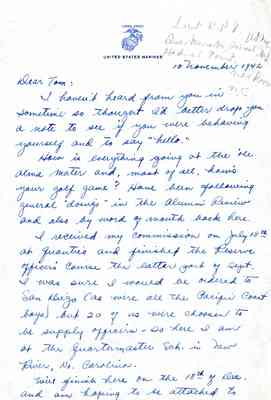 UNITED STATES MARINES
10 November 1942
Dear Tom:
I haven't heard from you in
sometime so thought I'd better drop you
a note to see if you were behaving
yourself and to say "hello."
How is everything going at the ole
alma mater and, most of all, how's
your golf game? Have been following
general "doings" in the Alumni Review
and also by word of mouth back here.
I received my commission on July 18th
at Quantico and finished the Reserve
Officers' Course the latter part of Sept.
I was sure I would be ordered to
San Diego (as were all the Pacific Coast
boys) but 20 of us were choosen to
be supply officers - so here I am
at the Quartermaster Sch. in New
River, No. Carolina.
Will finish here on the 18th of Dec.
and am hoping to be attached to